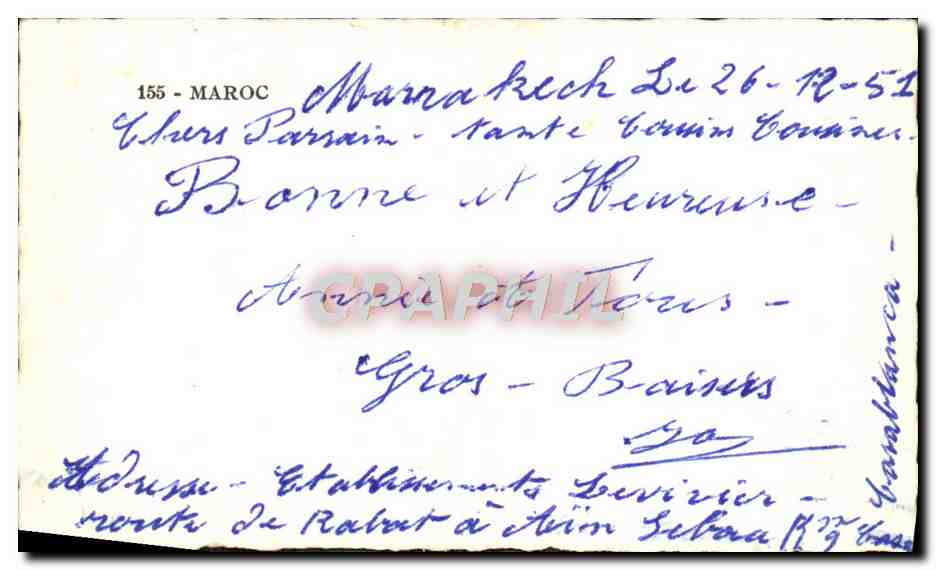 155 - MAROC
Marrakech Le 26-12-51
Chers Parrain - tante Cousins Cousines -
Bonne et Heureuse -
Année à Tous -
Gros - Baisers
Adresse - Etablissements Levivier -
route de Rabat à Aïn Sebaa Km 9 Casa
Casablanca -
CPAPHIL